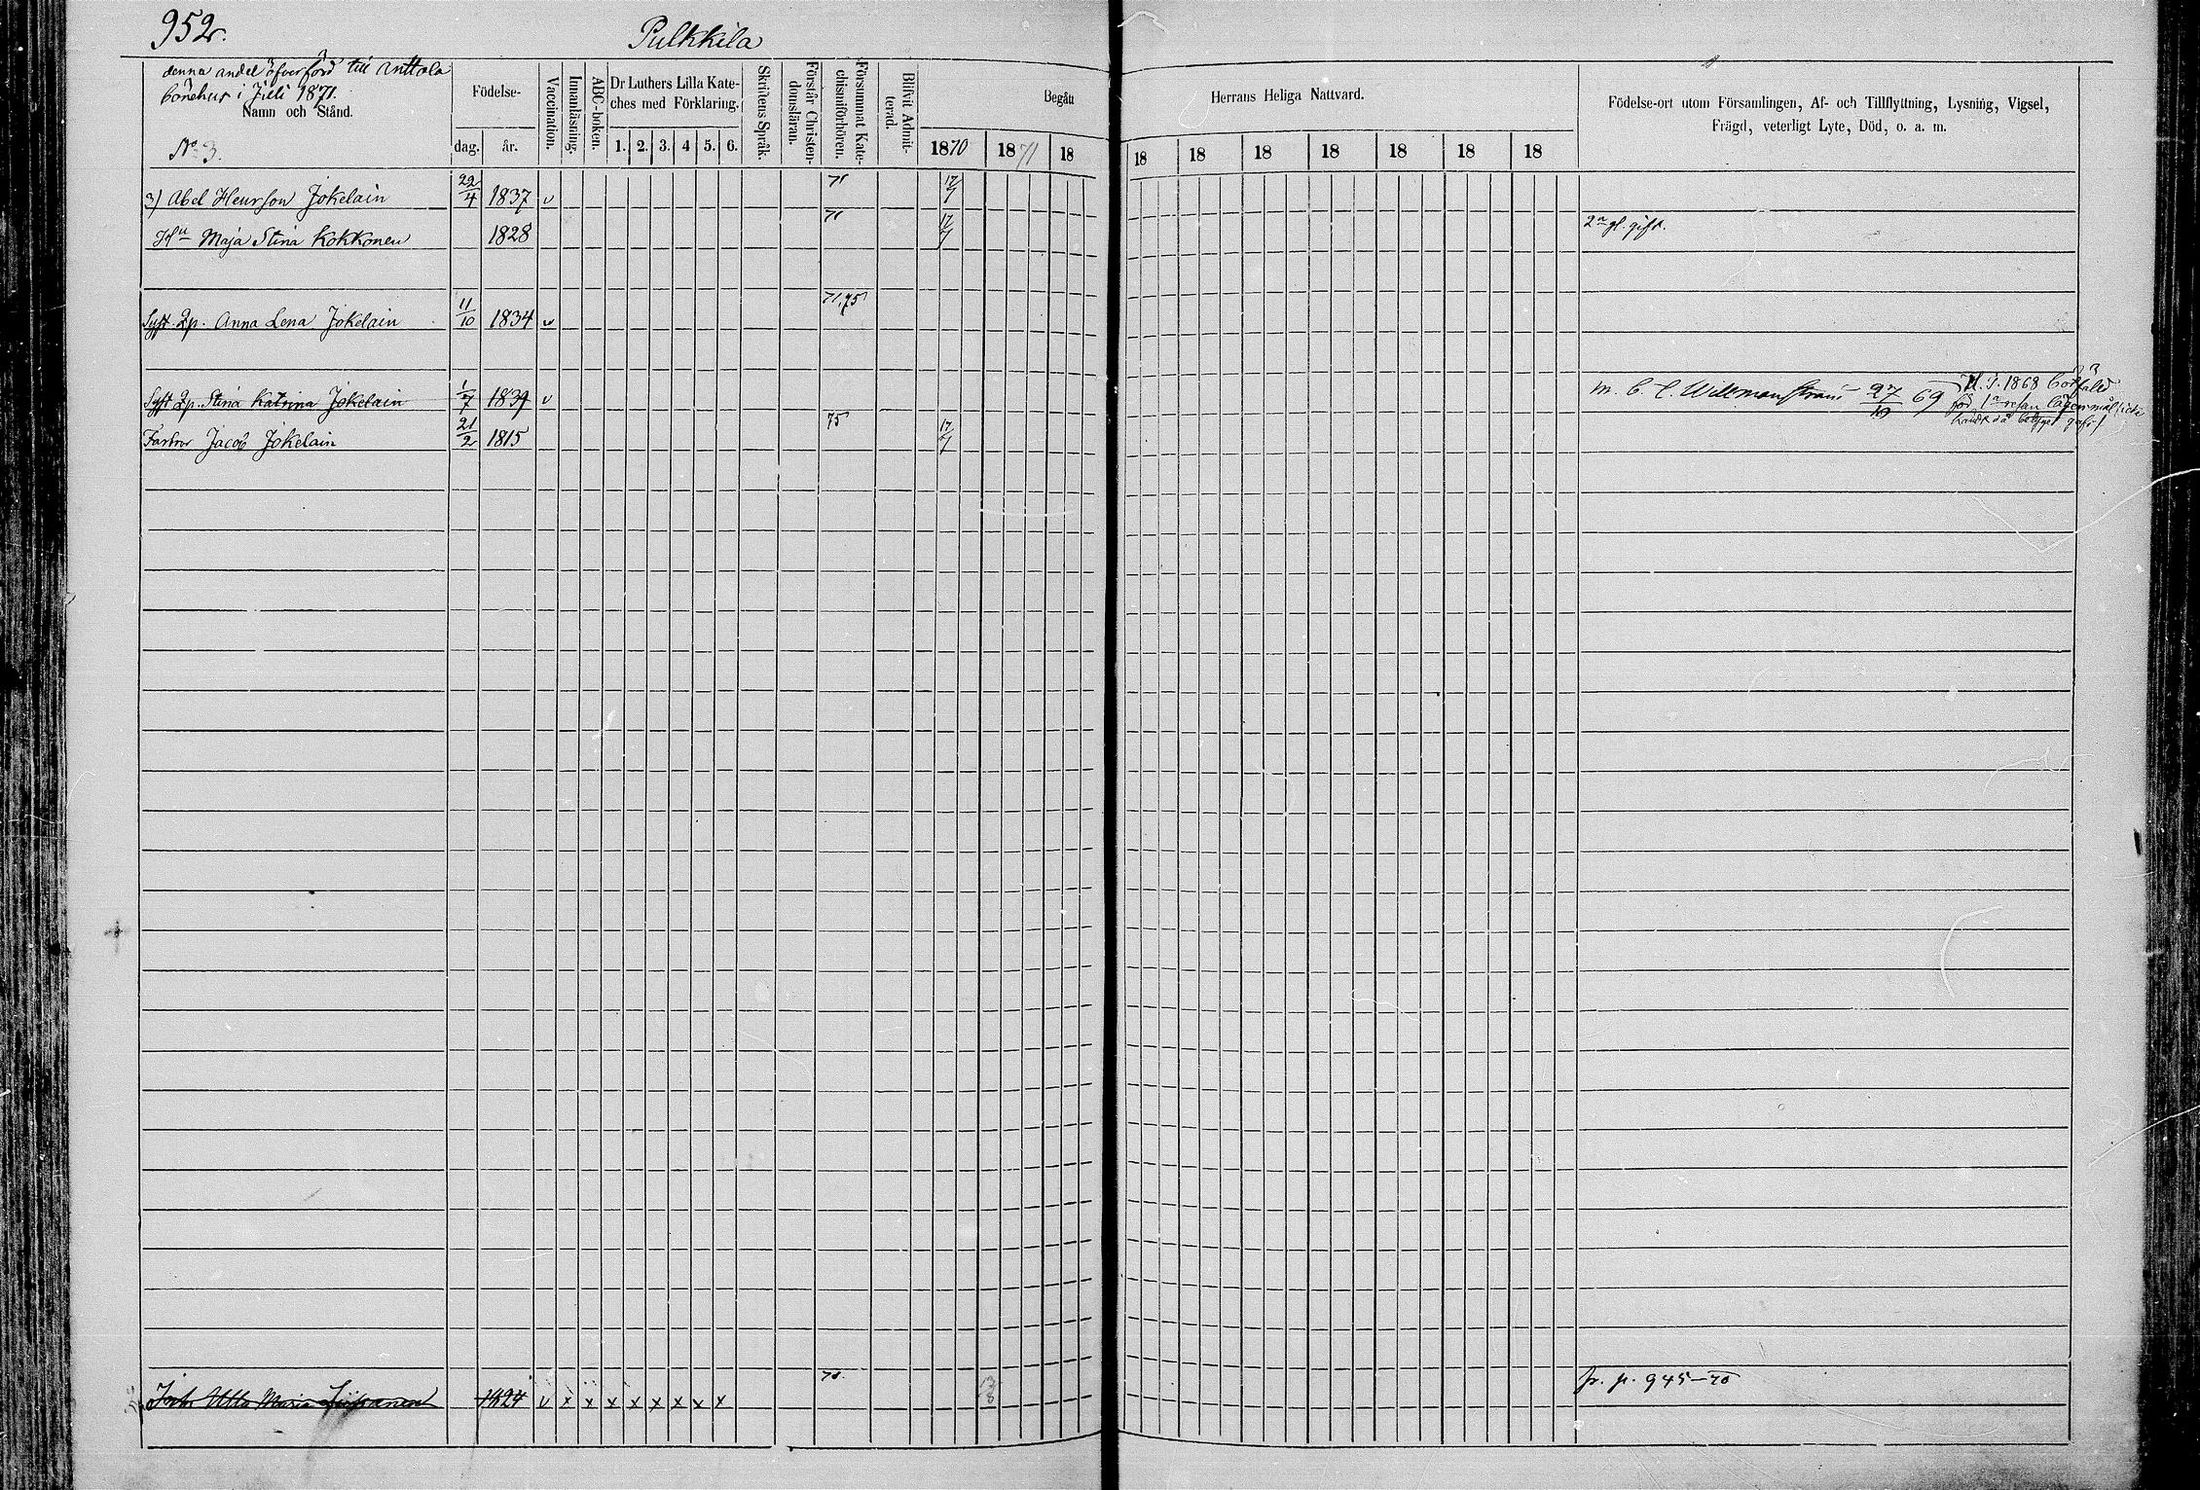 952.
Pulkkila
denna andel öfverförd till Anttola
bönehus i Juli 1871.
Namn och Stånd.
No 3.
Födelse-
dag.
år.
Vaccination.
Innanläsning.
ABC-boken.
Dr Luthers Lilla Kate-
ches med Förklaring.
1. 2. 3. 4 5. 6.
Skriftens Språk.
Förstår Christen-
domsläran.
Försummat Kate-
chismiförhören.
Blifvit Admit-
terad.
Begått
Herrans Heliga Nattvard.
1870 1871 18 18 18 18 18 18 18 18
Födelse-ort utom Församlingen, Af- och Tillflyttning, Lysning, Vigsel,
Frägd, veterligt Lyte, Död, o. a. m.
3) Abel Henrsson Jokelain 22/4 1837 v 71 17/7
Hu Maja Stina Kokkonen 1828 71 17/7 2a gl. gift.
Syst. Qp. Anna Lena Jokelain 11/10 1834 v 71,75
Syst Qp. Stina Katrina Jokelain 1/7 1839 v m. b. t. Willmanstrand 27/10 69
1868 botfäld
för 1a resan lägersmål
Farbror Jacob Jokelain 21/2 1815 75 17/7
Ulla Maria 1824 v x x x x x x x x 70. fr. p. 945–70